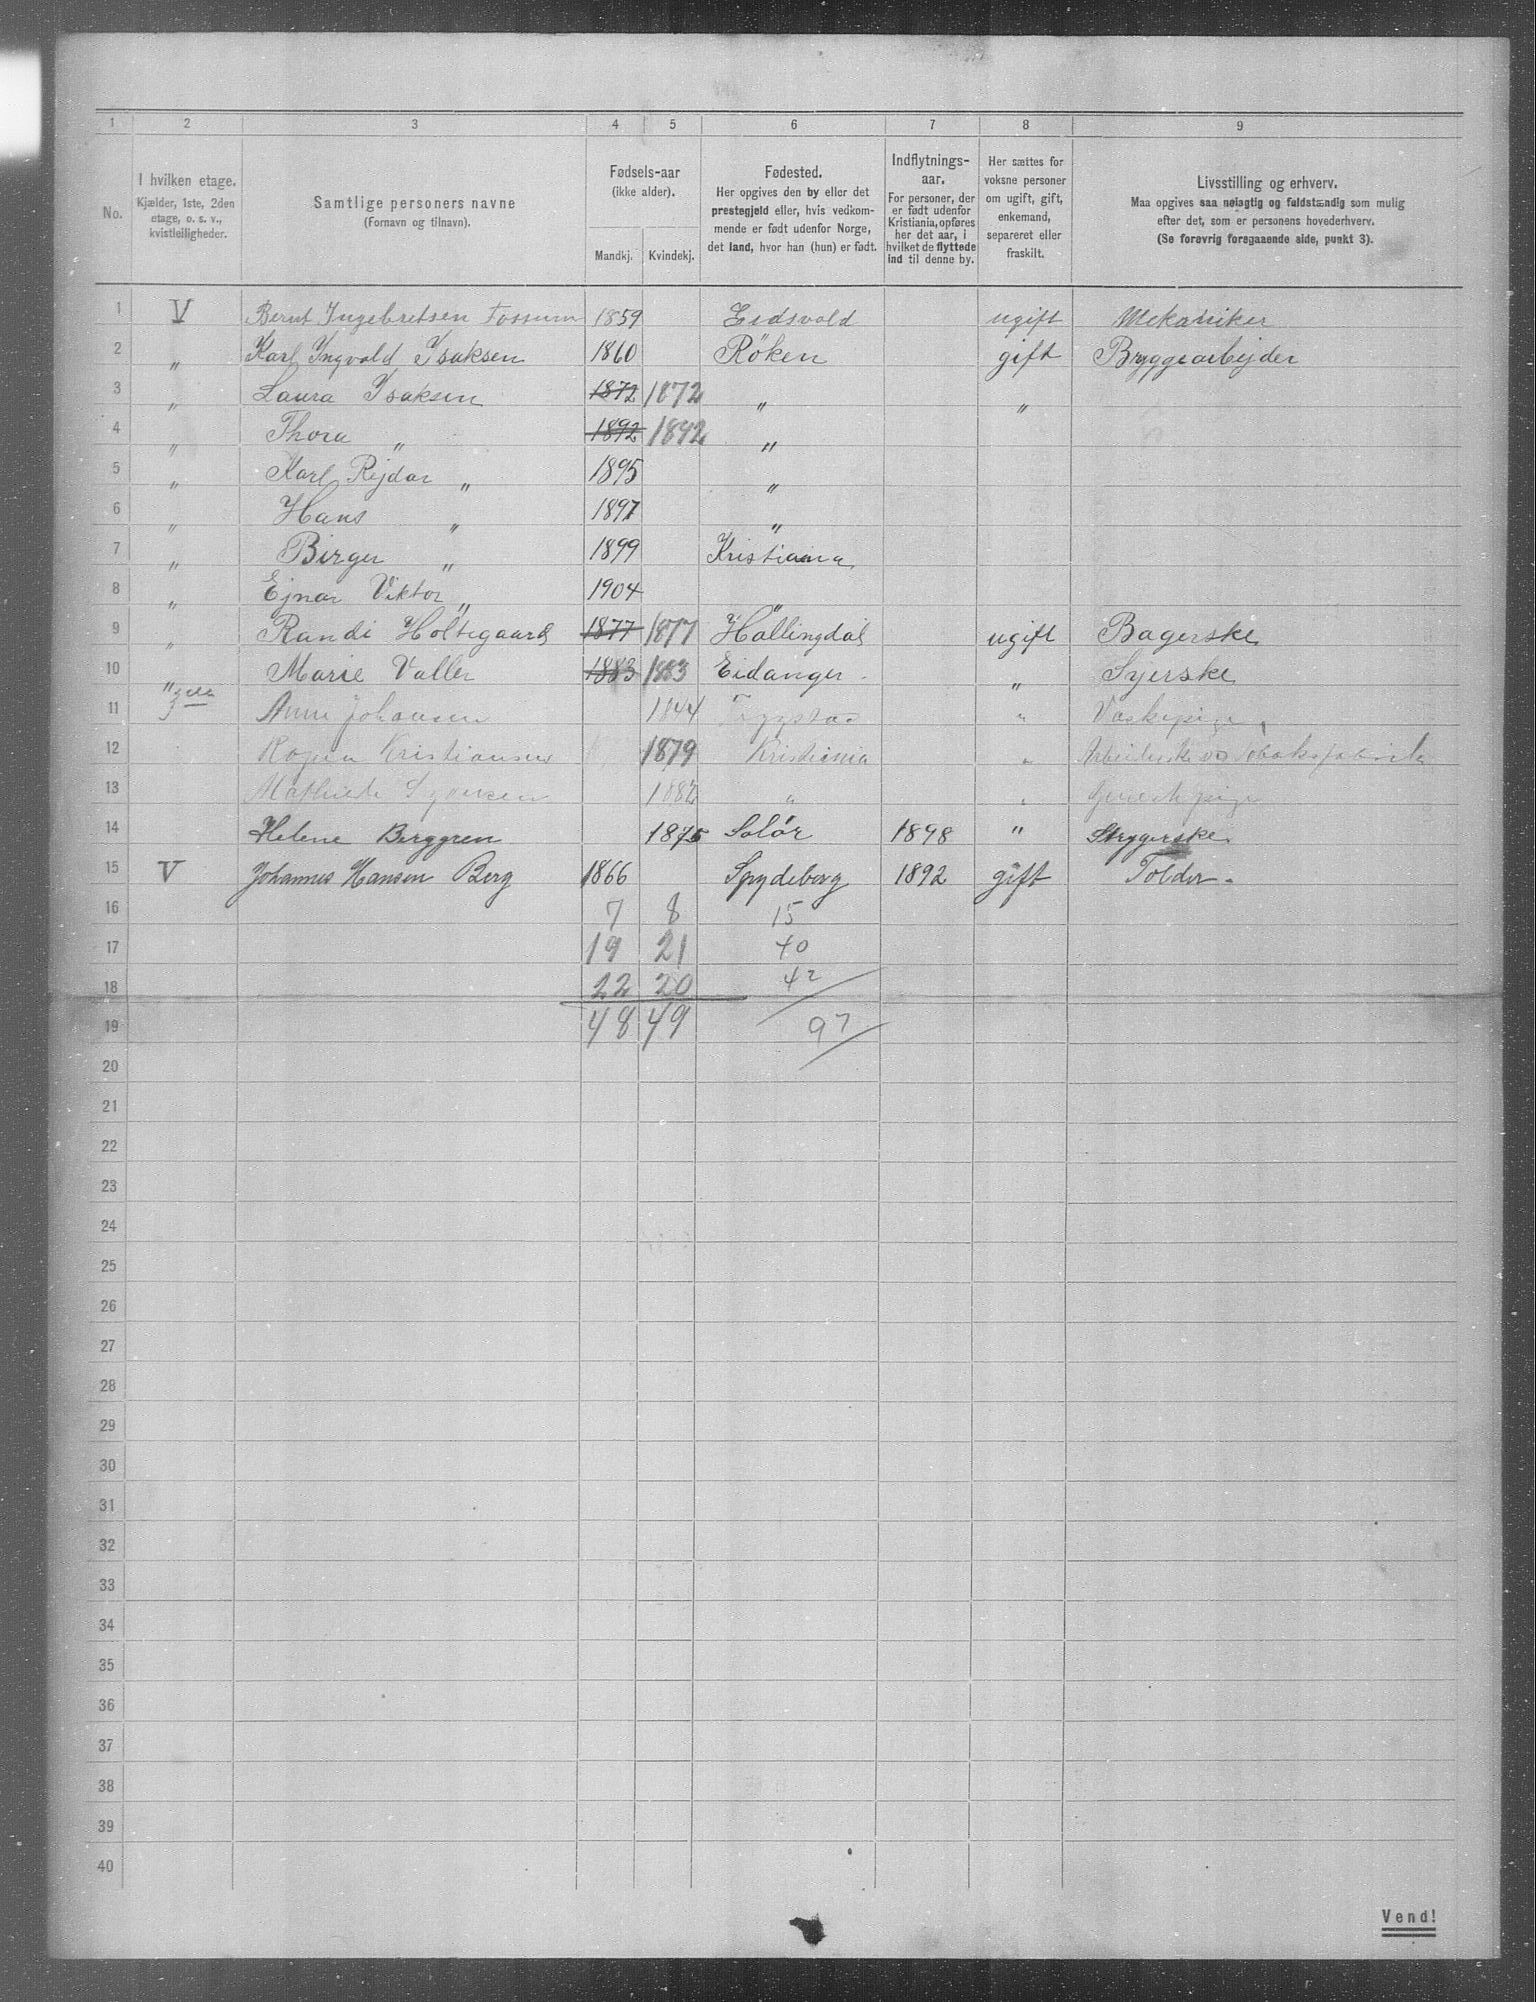 1 2 3 4 5 6 7 8 9
No.
I hvilken etage.
Kjælder, 1ste, 2den
etage, o. s. v.,
kvistleiligheder.
Samtlige personers navne
(Fornavn og tilnavn).
Fødsels-aar
(ikke alder).
Mandkj. Kvindekj.
Fødested.
Her opgives den by eller det
prestegjeld eller, hvis vedkom-
mende er født udenfor Norge,
det land, hvor han (hun) er født.
Indflytnings-
aar.
For personer, der
er født udenfor
Kristiania, opføres
her det aar, i
hvilket de flyttede
ind til denne by.
Her sættes for
voksne personer
om ugift, gift,
enkemand,
separeret eller
fraskilt.
Livsstilling og erhverv.
Maa opgives saa nøiagtig og fuldstændig som mulig
efter det, som er personens hovederhverv.
(Se forøvrig foregaaende side, punkt 3).
1 V Bernt Ingebretsen Fossum 1859 Eidsvold ugift Mekaniker
2 " Karl Ingvald Isaksen 1860 Röken gift Bryggearbejder
3 " Laura Isaksen 1872 1872 " "
4 " Thora " 1892 1892 "
5 " Karl Rejdar " 1895 "
6 " Hans " 1897 "
7 " Birger " 1899 Kristiania
8 " Ejnar Viktor " 1904 "
9 " Randi Holtegaard 1877 1877 Hallingdal ugift Bagerske
10 " Marie Valler 1883 1883 Eidanger " Syerske
11 3die Anne Johansen 1844 "
12 Kristiansen 1879 Kristiania "
13 1882 " "
14 Helene Berggren 1875 Solör 1898 " Strygerske
15 V Johannes Hansen Berg 1866 Spydeberg 1892 gift Tolder
16 7 8 15
17 19 21 40
18 22 20 42
19 48 49 97
20
21
22
23
24
25
26
27
28
29
30
31
32
33
34
35
36
37
38
39
40
Vend!